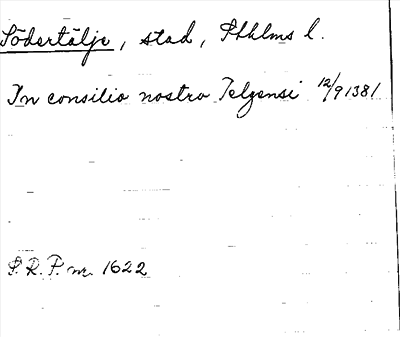 Södertälje, stad, Sthlms l.
In consilio nostro Telgensi 12/9 1381
S.R.P. nr. 1622